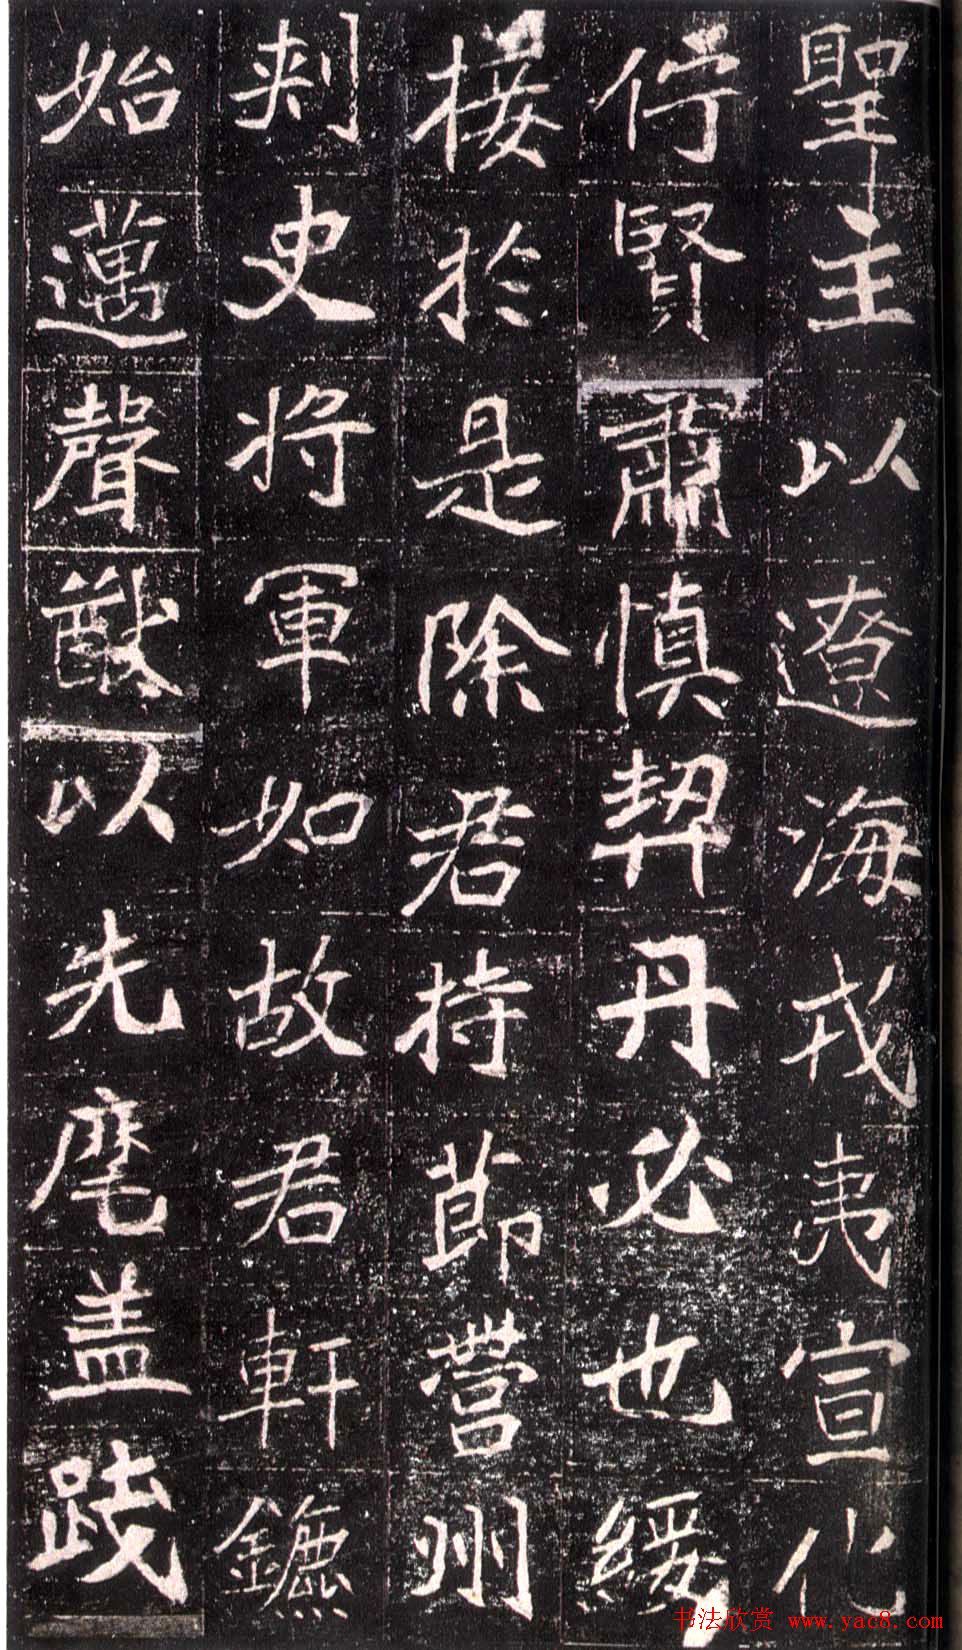 聖主以遼海戎夷宣化
佇賢肅慎契丹必也綏
接於是除君持節營州
刺史將軍如故君軒鑣
始邁聲猷以先麾盖踐
书法欣赏 www.yac8.com